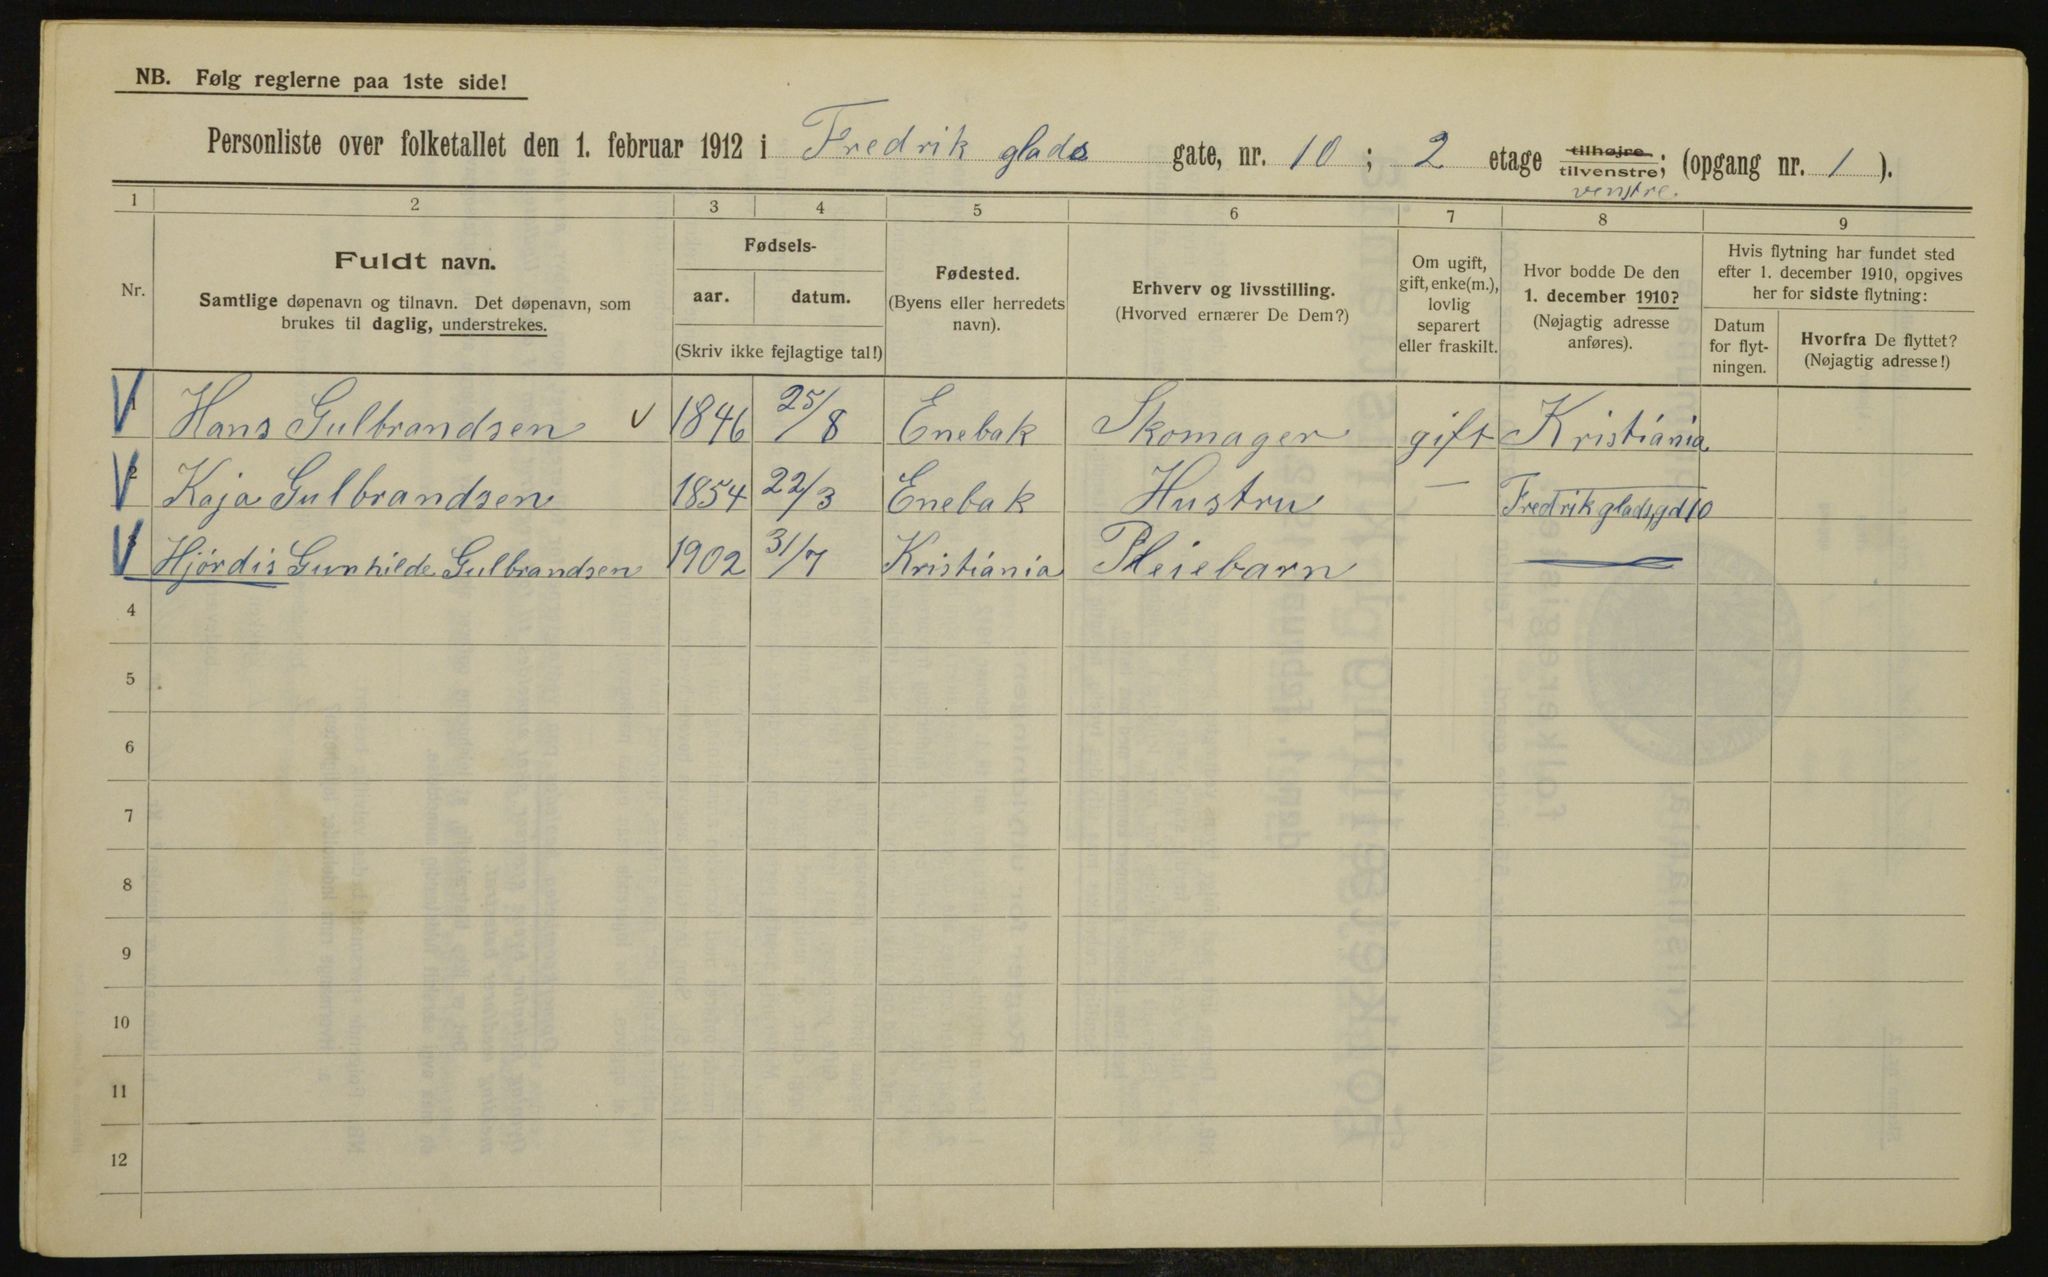 NB. Følg reglerne paa 1ste side!
Personliste over folketallet den 1. februar 1912 i Fredrik glads gate, nr. 10 ; 2 etage tilhøjre tilvenstre; (opgang nr. 1 ).
venstre.
1 2 3 4 5 6 7 8 9
Nr.
Fuldt navn.
Samtlige døpenavn og tilnavn. Det døpenavn, som
brukes til daglig, understrekes.
Fødsels-
aar. datum.
(Skriv ikke fejlagtige tal!)
Fødested.
(Byens eller herredets
navn).
Erhverv og livsstilling.
(Hvorved ernærer De Dem?)
Om ugift,
gift, enke(m.),
lovlig
separert
eller fraskilt.
Hvor bodde De den
1. december 1910?
(Nøjagtig adresse
anføres).
Hvis flytning har fundet sted
efter 1. december 1910, opgives
her for sidste flytning:
Datum
for flyt-
ningen.
Hvorfra De flyttet?
(Nøjagtig adresse!)
1 Hans Gulbrandsen 1846 25/8 Enebak Skomager gift Kristiania
2 Kaja Gulbrandsen 1854 22/3 Enebak Hustru — Fredrik glads gd 10
3 Hjørdis Gunhilde Gulbrandsen 1902 31/7 Kristiania Pleiebarn
4
5
6
7
8
9
10
11
12